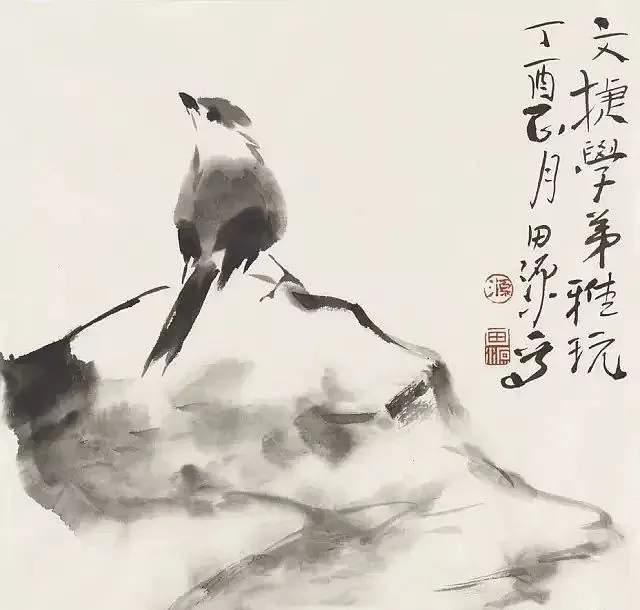 文捷學弟雅玩
丁酉正月田源寫
源
田源